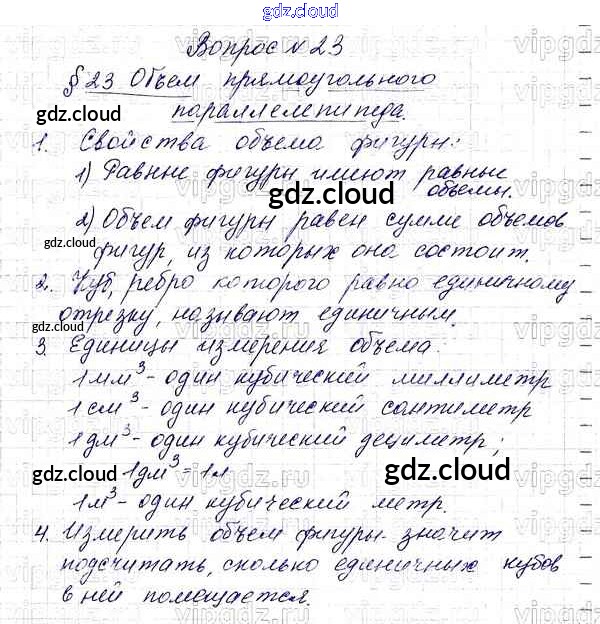 gdz.cloud
Вопрос №23
§23 Объем прямоугольного
параллелепипеда.
gdz.cloud
1. Свойства объема фигуры:
1) Равные фигуры имеют равные
объемы.
gdz.cloud
2) Объем фигуры равен сумме объемов
gdz.cloud
фигур, из которых она состоит.
2. Куб, ребро которого равно единичному
отрезку, называют единичным.
gdz.cloud
3. Единицы измерения объема:
1мм³ - один кубический миллиметр
1см³ - один кубический сантиметр
1дм³ - один кубический дециметр;
gdz.cloud
1дм³ = 1л
gdz.cloud
1м³ - один кубический метр.
4. Измерить объем фигуры значит
подсчитать, сколько единичных кубов
в ней помещается.